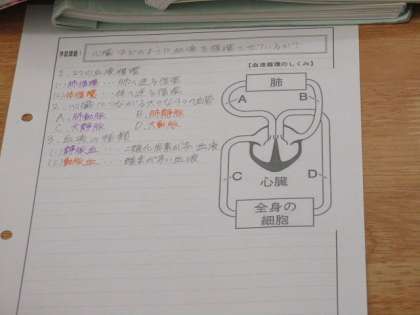 学習課題:心臓はどのように血液を循環させているか?
1. 2つの血液循環
(1)肺循環 … 肺へ送る循環
(2)体循環 … 体へ送る循環
2. 心臓につながる大きな4つの血管
A. 肺動脈 B. 肺静脈
C. 大静脈 D. 大動脈
3. 血液の種類
(1)静脈血 … 二酸化炭素が多い血液
(2)動脈血 … 酸素が多い血液
【血液循環のしくみ】
肺
A B
C D
心臓
全身の
細胞